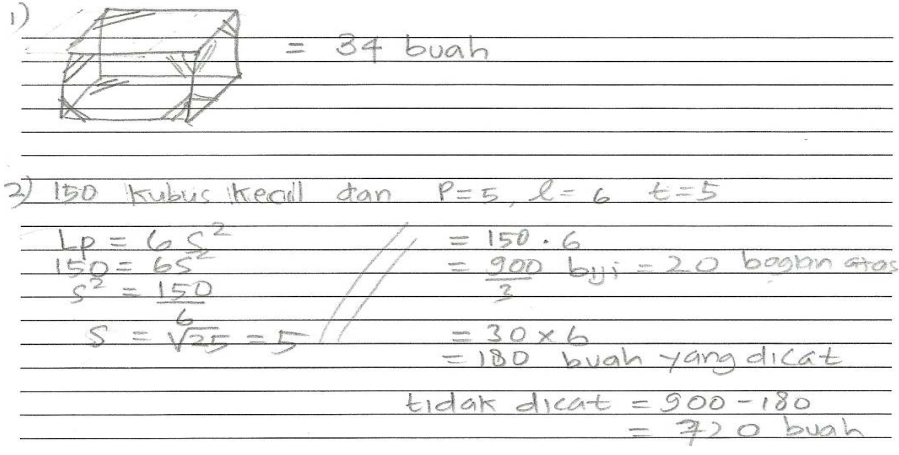 1)
= 34 buah
2) 150 kubus kecil dan P=5, l=6 t=5
Lp = 6 S²
150 = 6S²
S² = 150/6
S = √25 = 5
= 150 . 6
= 900/3 biji = 20 bagian atas
= 30 x 6
= 180 buah yang dicat
tidak dicat = 900 - 180
= 720 buah